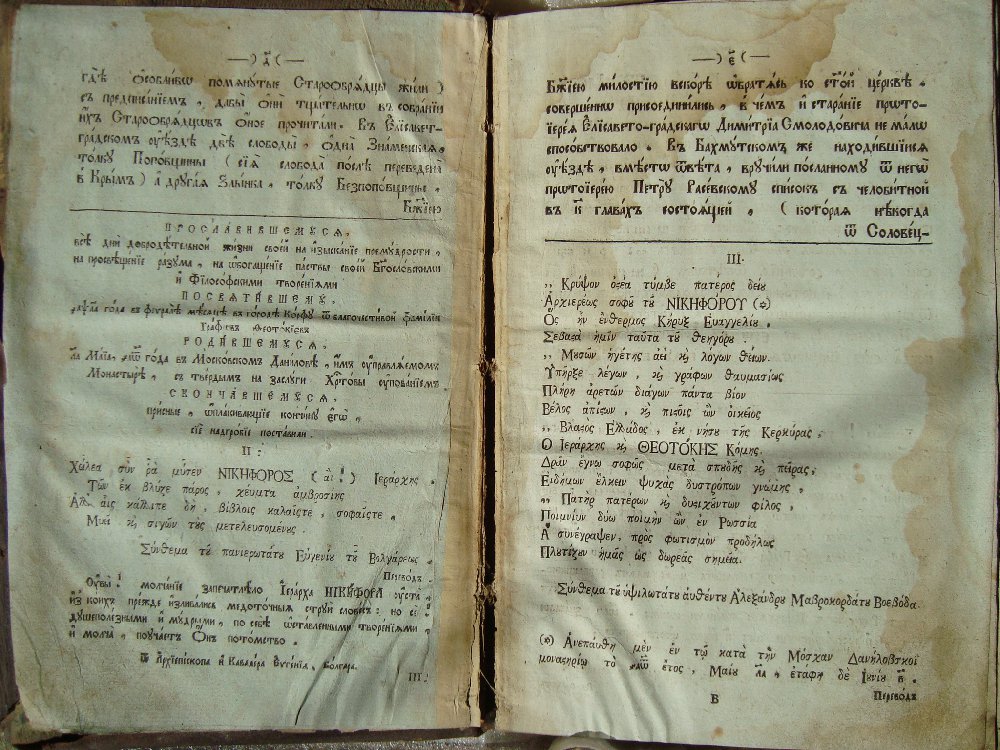 —)д҃(—
гдѣ ѻсобливѡ помянутые Старообрѧдцы жили )
съ предписанїемъ, дабы ѻни тщательнѡ въ собранїи
ихъ Старообрѧдцѡвъ ѻное прочитали. Въ Елїсавет-
градскомъ оуѣздѣ двѣ слободы, ѻдна Знаменская,
толку Поповщины ( сїѧ слобода послѣ переведена
в Крымъ ) а другаѧ Злынка, толку Безпоповщины,
Бж҃їею
ПРОСЛАВИВШЕМУСѦ,
всѣ дни добродѣтельной жизни своей на изысканїе премудрости,
на просвѣщенїе разума, на ѡбогащенїе паствы своей Бг҃ословскими
и Фїлософскими творенїями
ПОСВѦТИВШЕМУ,
года въ феуралѣ мѣсѧцѣ въ городѣ Корфу ѿ благочестивой фамилїи
Графѡвъ Ѳеотокїевъ
РОДИВШЕМУСѦ,
л҃а Маїа, года въ Московскомъ Даниловѣ, имъ оуправлѧемомъ
Монастырѣ, съ твердымъ на заслуги Хрⷭ҇товы упованїемъ
СКОНЧАВШЕМУСѦ,
присные, ѡплакивающїе кончину егѡ,
сїе надгробїе поставили.
II:
Χώλεα σῦν ῥὰ μύσεν ΝΙΚΗΦΟΡΟΣ ( αἲ! ) Ἱεράρχης,
Τῶν ἐκ βλύζε πάρος, χεύματα ἀμβροσίης
Ἀλλ' αἷς κάλλιπε δὴ, βίβλοις καλαῖς τε, σοφαῖς τε,
καὶ σιγῶν τοὺς μετελευσομένους.
Σύνθεμα τοῦ πανιερωτάτου Εὐγενίου τοῦ Βουλγάρεως.
Переводъ.
Оувы! молчанїе запечатлѣло Іерарха НИКИФОРА оуста,
из коихъ прежде изливались медоточныѧ струи словесъ: но се
душеполезными и мудрыми, по себѣ ѡставленными творенїѧми,
и молча, поучаетъ Ѻнъ потомство.
Ѿ Архїепископа и Кавалера Еугенїа, Болгара.
III.
—)є҃(—
Бж҃їею милостїю вскорѣ ѡбратѧсь ко ст҃ой церквѣ,
совершеннѡ присоединились, в чемъ и старанїе прѡто-
їереѧ Елїсавето-градскагѡ Димитрїа Смолодовича не малѡ
способствовало. Въ Бахмутскомъ же находившїесѧ
оуѣздѣ, вмѣстѡ ѿвѣта, вручили посланному ѿ негѡ
прѡтоїерею Петру Расевскому списокъ съ челобитной
въ к҃ главахъ состоѧщей, ( которая нѣкогда
ѿ Соловец-
III.
„ Κρύψον ὀστέα τύμβε πατέρος δεῖο
Ἀρχιερέως σοφοῦ τοῦ ΝΙΚΗΦΟΡΟΥ (*)
Ὃς ἦν ἔνθερμος Κήρυξ Εὐαγγελίου.
Σεβαστὰ ἡμῖν ταῦτα τοῦ θεηγόρου.
„ Μουσῶν ἡγέτης ἀεὶ καὶ λόγων θείων.
Ὑπῆρξε λέγων, καὶ γράφων θαυμασίως
Πλήρη ἀρετῶν διάγων πάντα βίον
Βέλος ἀπίστων, καὶ πιστοῖς ὢν οἰκεῖος
„ Βλαστὸς Ἑλλάδος, ἐκ νήσου τῆς Κερκύρας,
Ὁ Ἱεράρχης καὶ ΘΕΟΤΟΚΗΣ Κόμης.
Δρᾶν ἔγνω σοφῶς μετὰ σπουδῆς καὶ πείρας,
Εἰδήμων ἕλκειν ψυχὰς δυστρόπου γνώμης,
„ Πατὴρ πατέρων καὶ δυστυχούντων φίλος,
Ποιμνίων δύω ποιμὴν ὢν ἐν Ρωσσίᾳ
Ἃ συνέγραψεν πρὸς φωτισμὸν προδήλως
Πλουτίζουν ἡμᾶς ὡς δωρεᾶς σημεῖα.
Σύνθεμα τοῦ ὑψηλωτάτου αὐθέντου Ἀλεξάνδρου Μαβροκορδάτου Βοεβόδα.
(*) Ἀνεπαύθη μὲν ἐν τῷ κατὰ τὴν Μόσχαν Δανιλοβσκοῖ
μοναστηρίῳ τὸ ἔτος, Μαΐου λ҃α, ἐτάφη δὲ Ἰουνίου в҃.
В
Переводъ